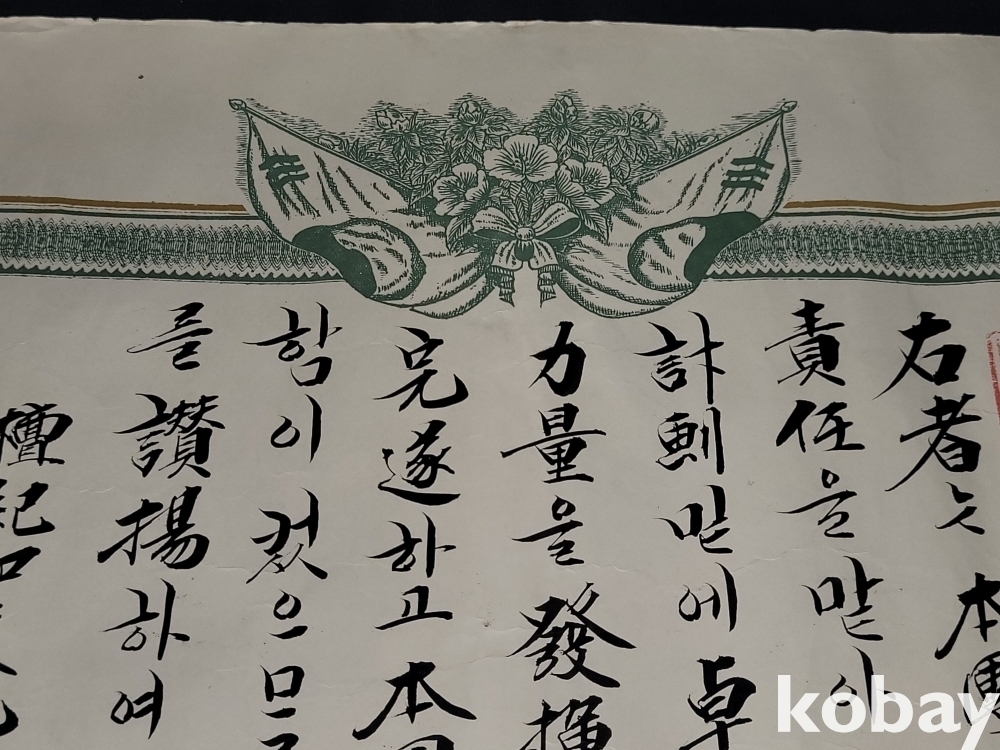 右者는 本團
責任을 맡아
計劃 밑에 卓
力量을 發揮
完遂하고 本
함이 컸으므로
를 讚揚하여
檀紀四
kobay